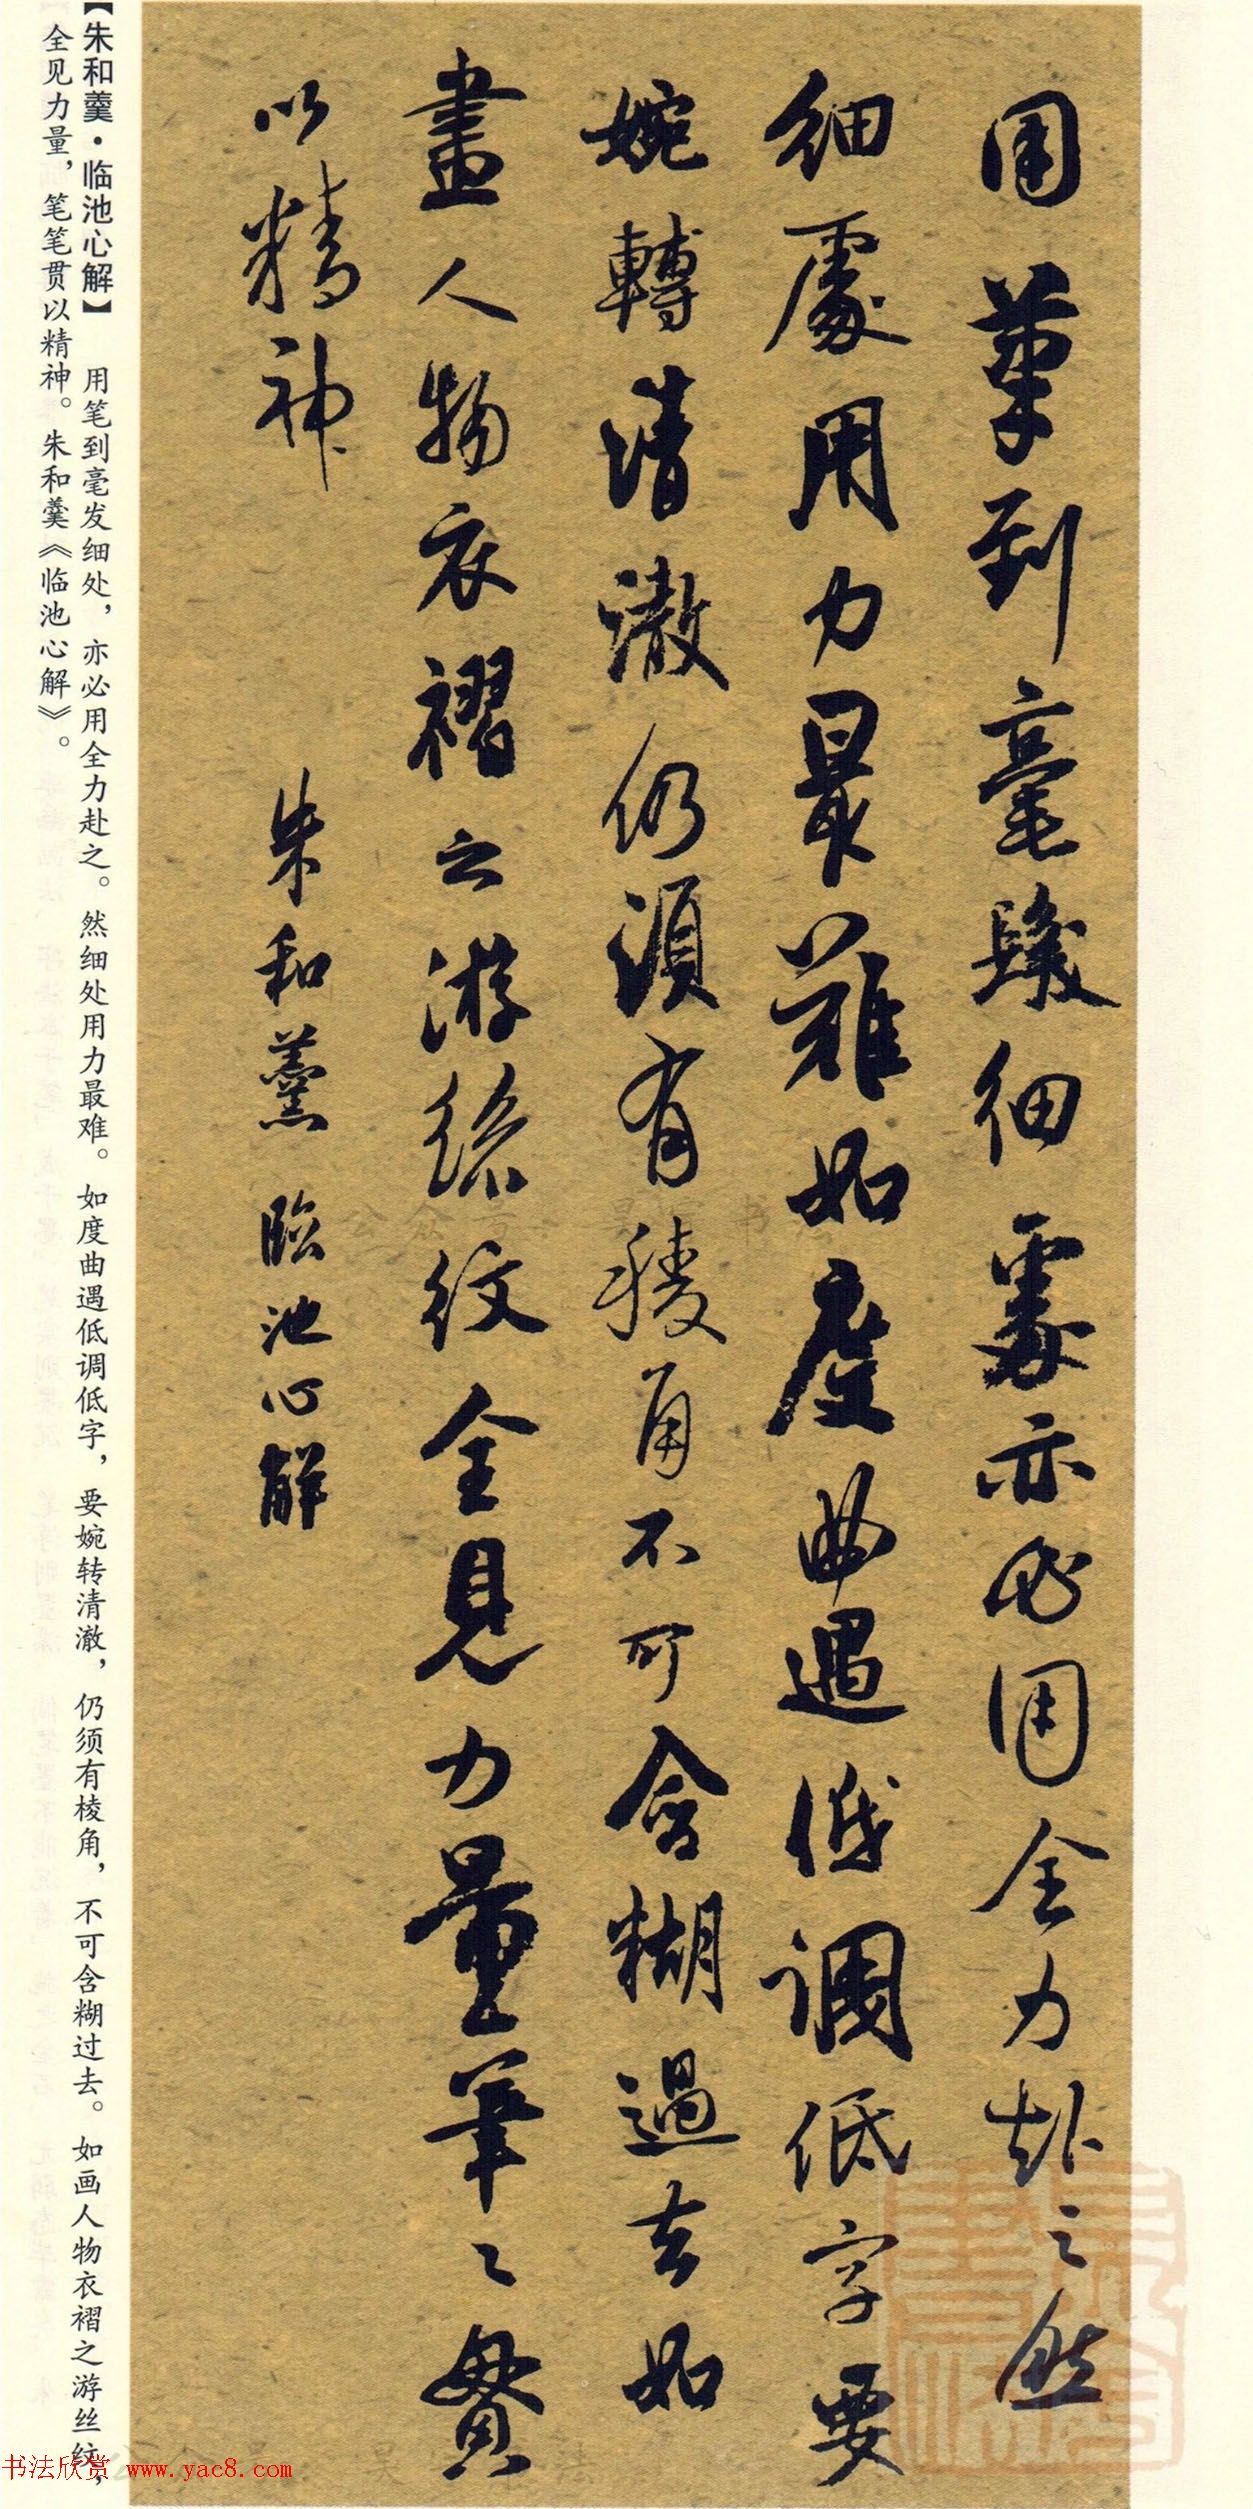 用筆到毫髮細處亦必用全力赴之然
細處用力最難如度曲遇低調低字要
婉轉清澈仍須有稜角不可含糊過去如
畫人物衣褶之游絲紋全見力量筆〻貫
以精神 朱和羹 臨池心解
【朱和羹·临池心解】 用笔到毫发细处，亦必用全力赴之。然细处用力最难。如度曲遇低调低字，要婉转清澈，仍须有棱角，不可含糊过去。如画人物衣褶之游丝纹，
全见力量，笔笔贯以精神。朱和羹《临池心解》。
书法欣赏 www.yac8.com